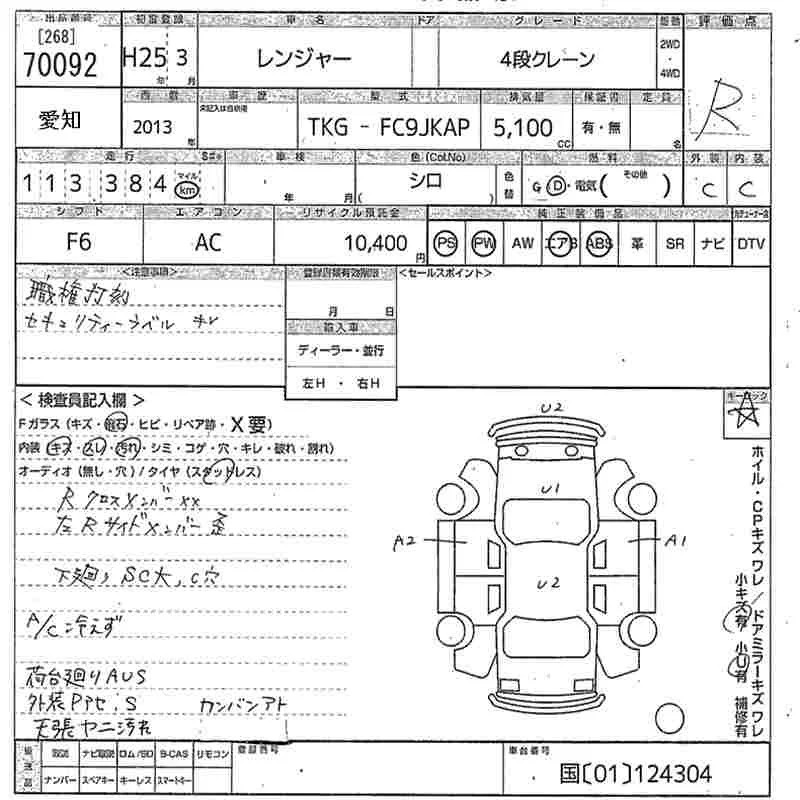 出品番号 初度登録 車名 ドア グレード 駆動 評価点
[268]
70092 H25 3 レンジャー 4段クレーン 2WD・4WD R
年 月
愛知 西暦 車歴 型式 排気量 保証書 定員
未記入は自家用
2013 TKG - FC9JKAP 5,100 有・無
年 CC 名
走行 車検 色(Col.No) 燃料 外装 内装
113384 マイル km 年 月 シロ ( ) 色替 G D・電気( その他 ) C C
シフト エアコン リサイクル預託金 純正装備品
F6 AC 10,400 円 PS PW AW エアB ABS 革 SR ナビ DTV
<注意事項> 登録書類有効期限 <セールスポイント>
職権打刻 月 日
セキュリティーラベル キレ 輸入車
ディーラー・並行
左H ・ 右H
<検査員記入欄> キーロック
Fガラス(キズ・飛石・ヒビ・リペア跡・X要)
内装(キズ・スレ・汚れ・シミ・コゲ・穴・キレ・破れ・割れ)
オーディオ(無し・穴)/タイヤ(スタッドレス)
Rクロスメンバーxx
左Rサイドメンバー歪
下廻りSC大,C穴
A/C冷えず
荷台廻りAUS
外装PPセ,S カンバンアト
天張ヤニ汚れ
U2
U1
A2 A1
U2
ホイル・CPキズワレ/ドアミラーキズワレ
小キズ有 小U有 補修有
ナビ取説 ロム/SD B-CAS リモコン 登録番号 車台番号
ナンバー スペアキー キーレス スマートキー 国[01]124304